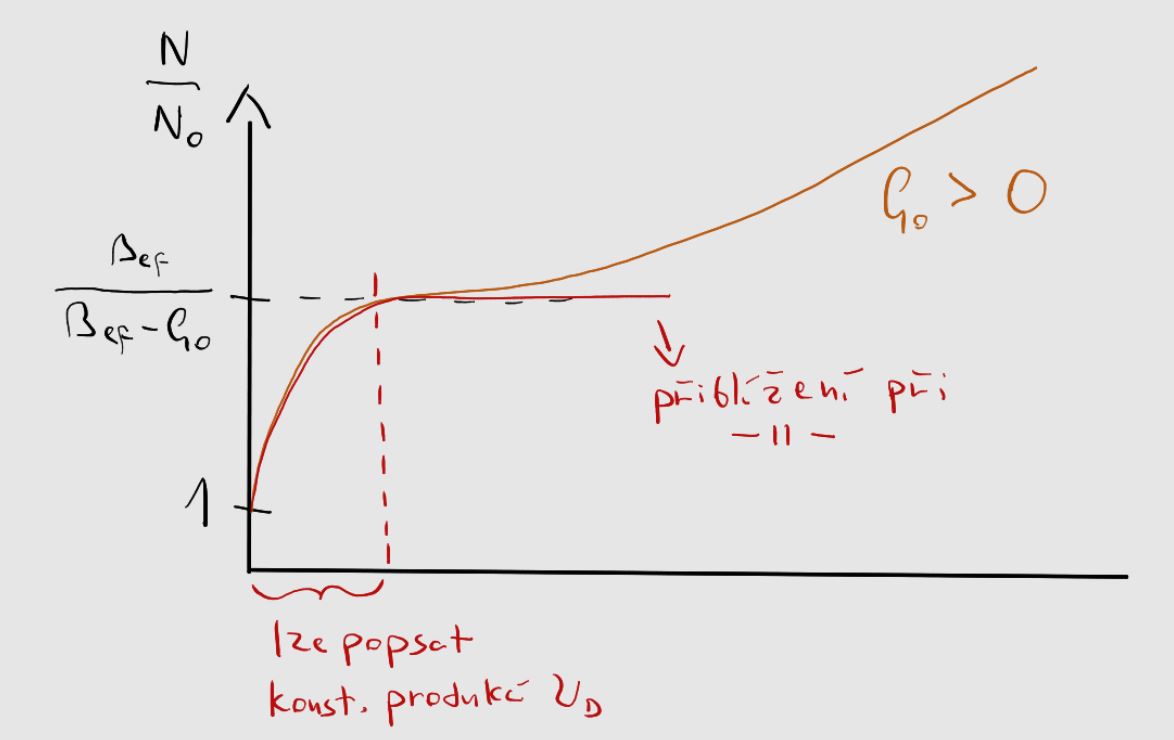 N
N₀
βef
βef - ρ₀
1
ρ₀ > 0
přiblížení při
— || —
lze popsat
konst. produkcí ν_D